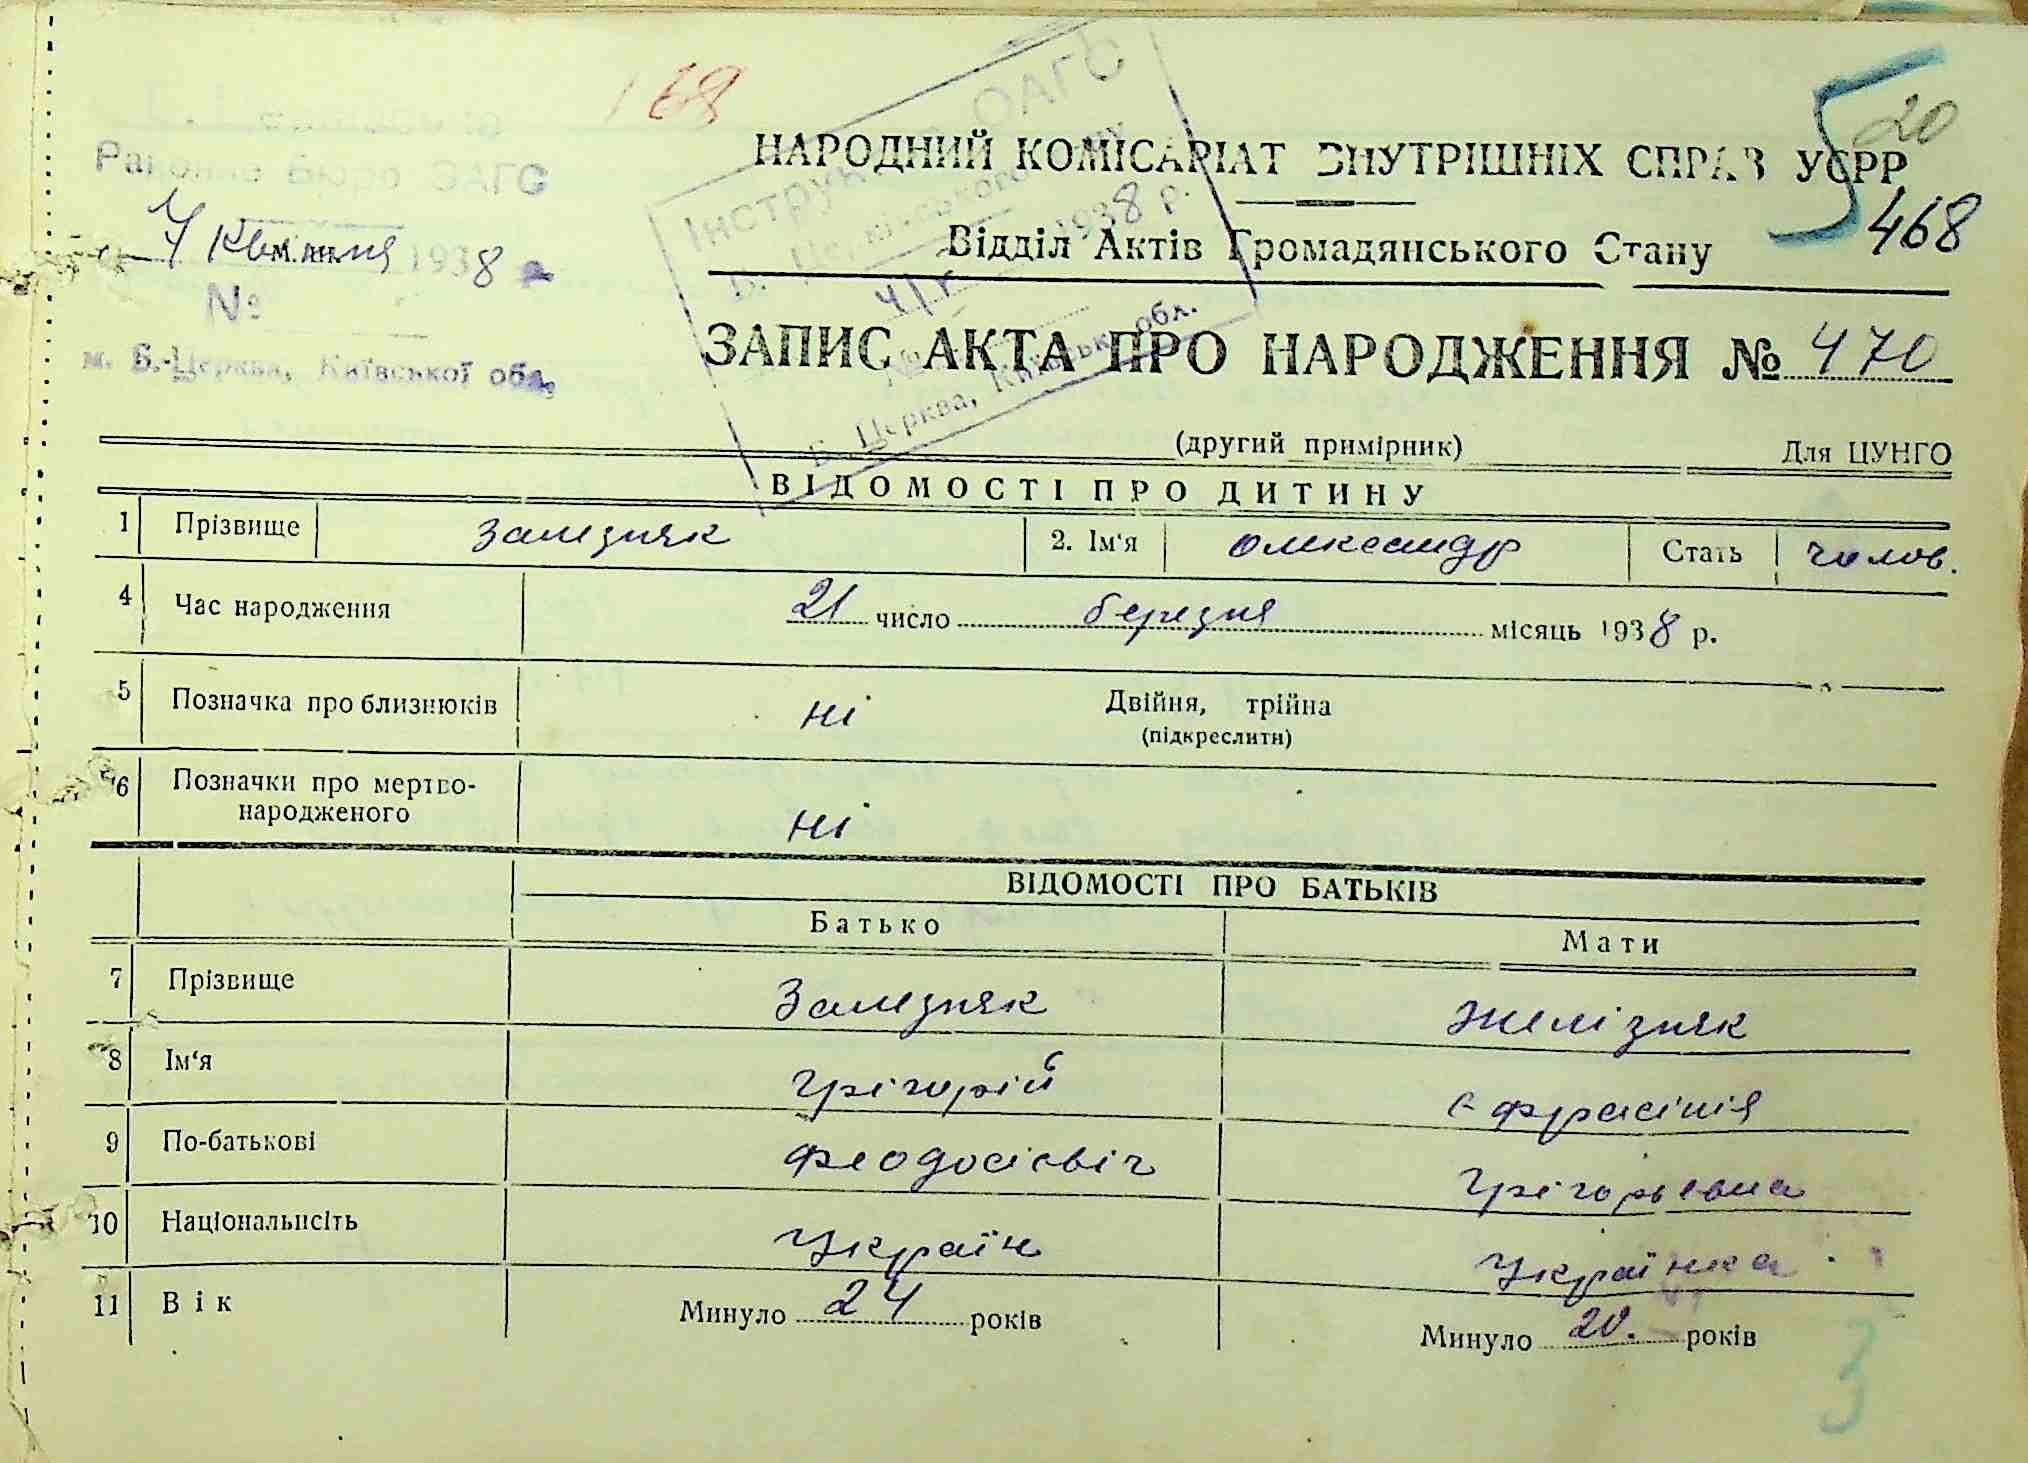 168
20
НАРОДНИЙ КОМІСАРІАТ ВНУТРІШНІХ СПРАВ УСРР
468
Відділ Актів Громадянського Стану
Районне Бюро ЗАГС
4 квітня 1938
№
м. Б.-Церква, Київської обл.
ОАГС
1938 р.
Б. Церква, Київськ. обл.
ЗАПИС АКТА ПРО НАРОДЖЕННЯ № 470
(другий примірник) Для ЦУНГО
ВІДОМОСТІ ПРО ДИТИНУ
1 Прізвище Залезняк 2. Ім'я Олександр Стать чолов.
4 Час народження 21 число березня місяць 1938 р.
5 Позначка про близнюків ні Двійня, трійна
(підкреслити)
6 Позначки про мертво-
народженого ні
ВІДОМОСТІ ПРО БАТЬКІВ
Батько Мати
7 Прізвище Залезняк Желізняк
8 Ім'я Грігорій Єфрасінія
9 По-батькові Феодосієвіч Грігорьевна
10 Національнсіть Україн Українка
11 Вік Минуло 24 років Минуло 20. років
3